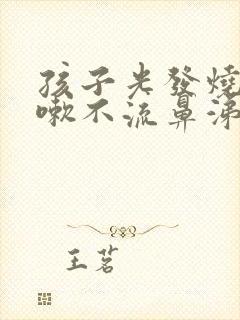 孩子光發燒
嗽不流鼻涕
王茗